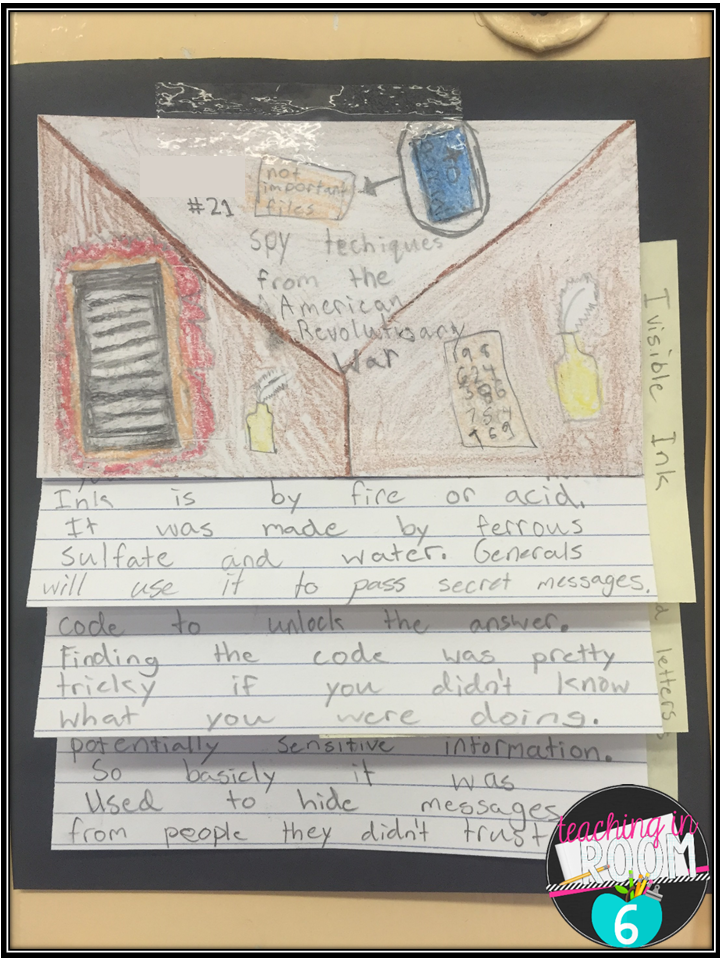 not
important
files
#21
spy techiques
from the
American
Revolutionary
War
Ivisible Ink
Ink is by fire or acid.
It was made by ferrous
sulfate and water. Generals
will use it to pass secret messages.
code to unlock the answer.
Finding the code was pretty
tricky if you didn't know
what you were doing.
letters
potentially sensitive information.
So basicly it was
Used to hide messages
from people they didn't trust
teaching in
ROOM
6